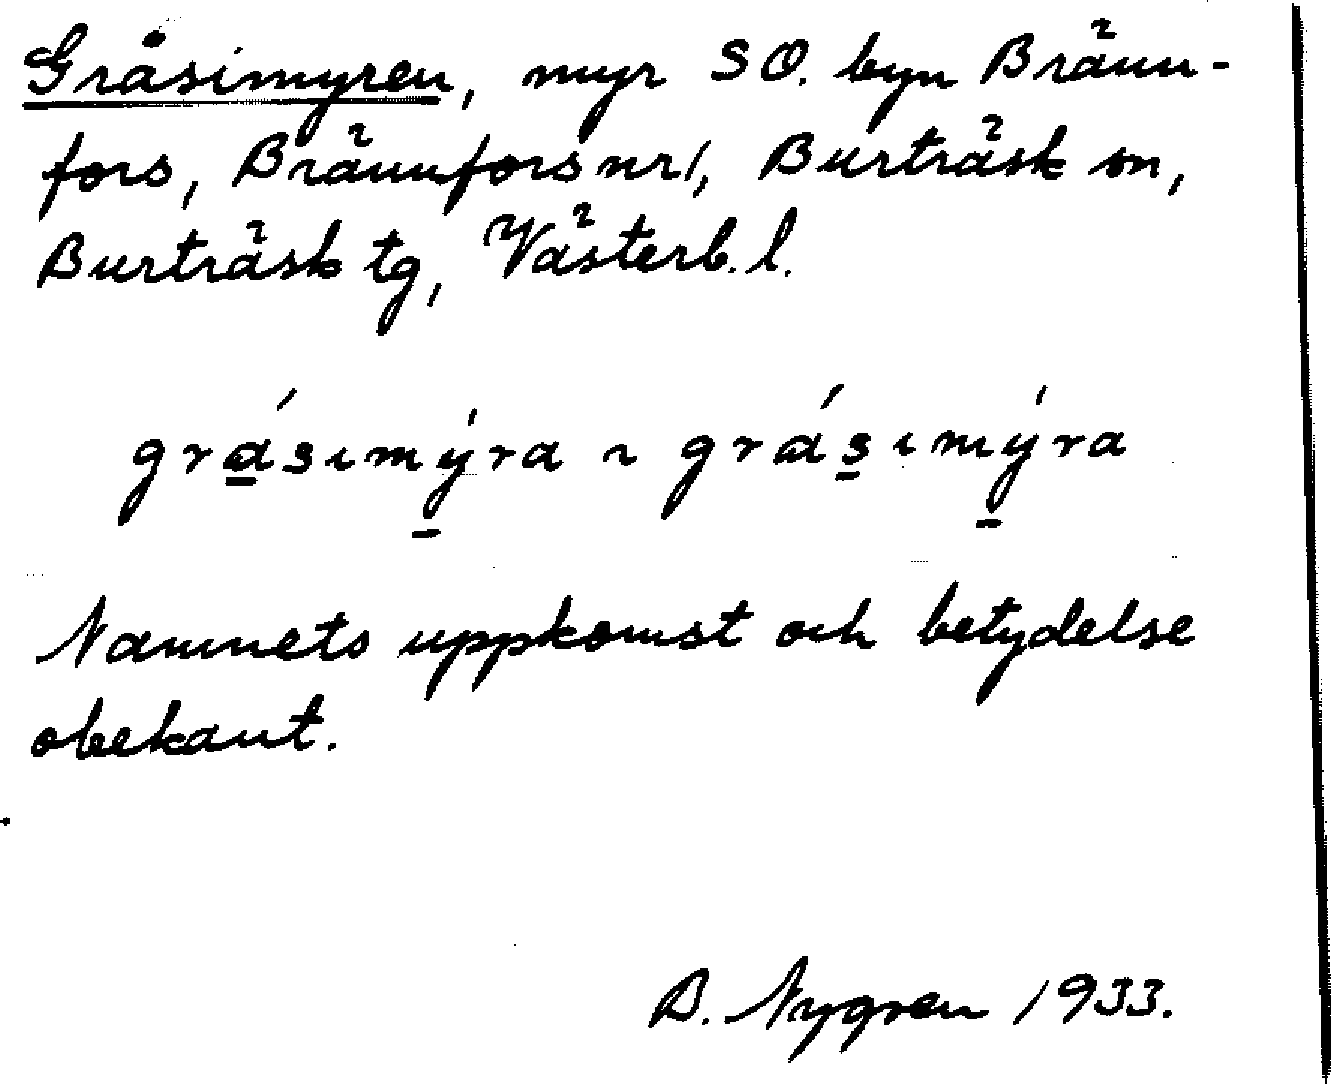 Gråsimyren, myr SO. byn Bränn-
fors, Brännfors nr 1, Burträsk sn,
Burträsk tg, Västerb. l.
grásımýra ~ grásımýra
Namnets uppkomst och betydelse
obekant.
B. Nygren 1933.